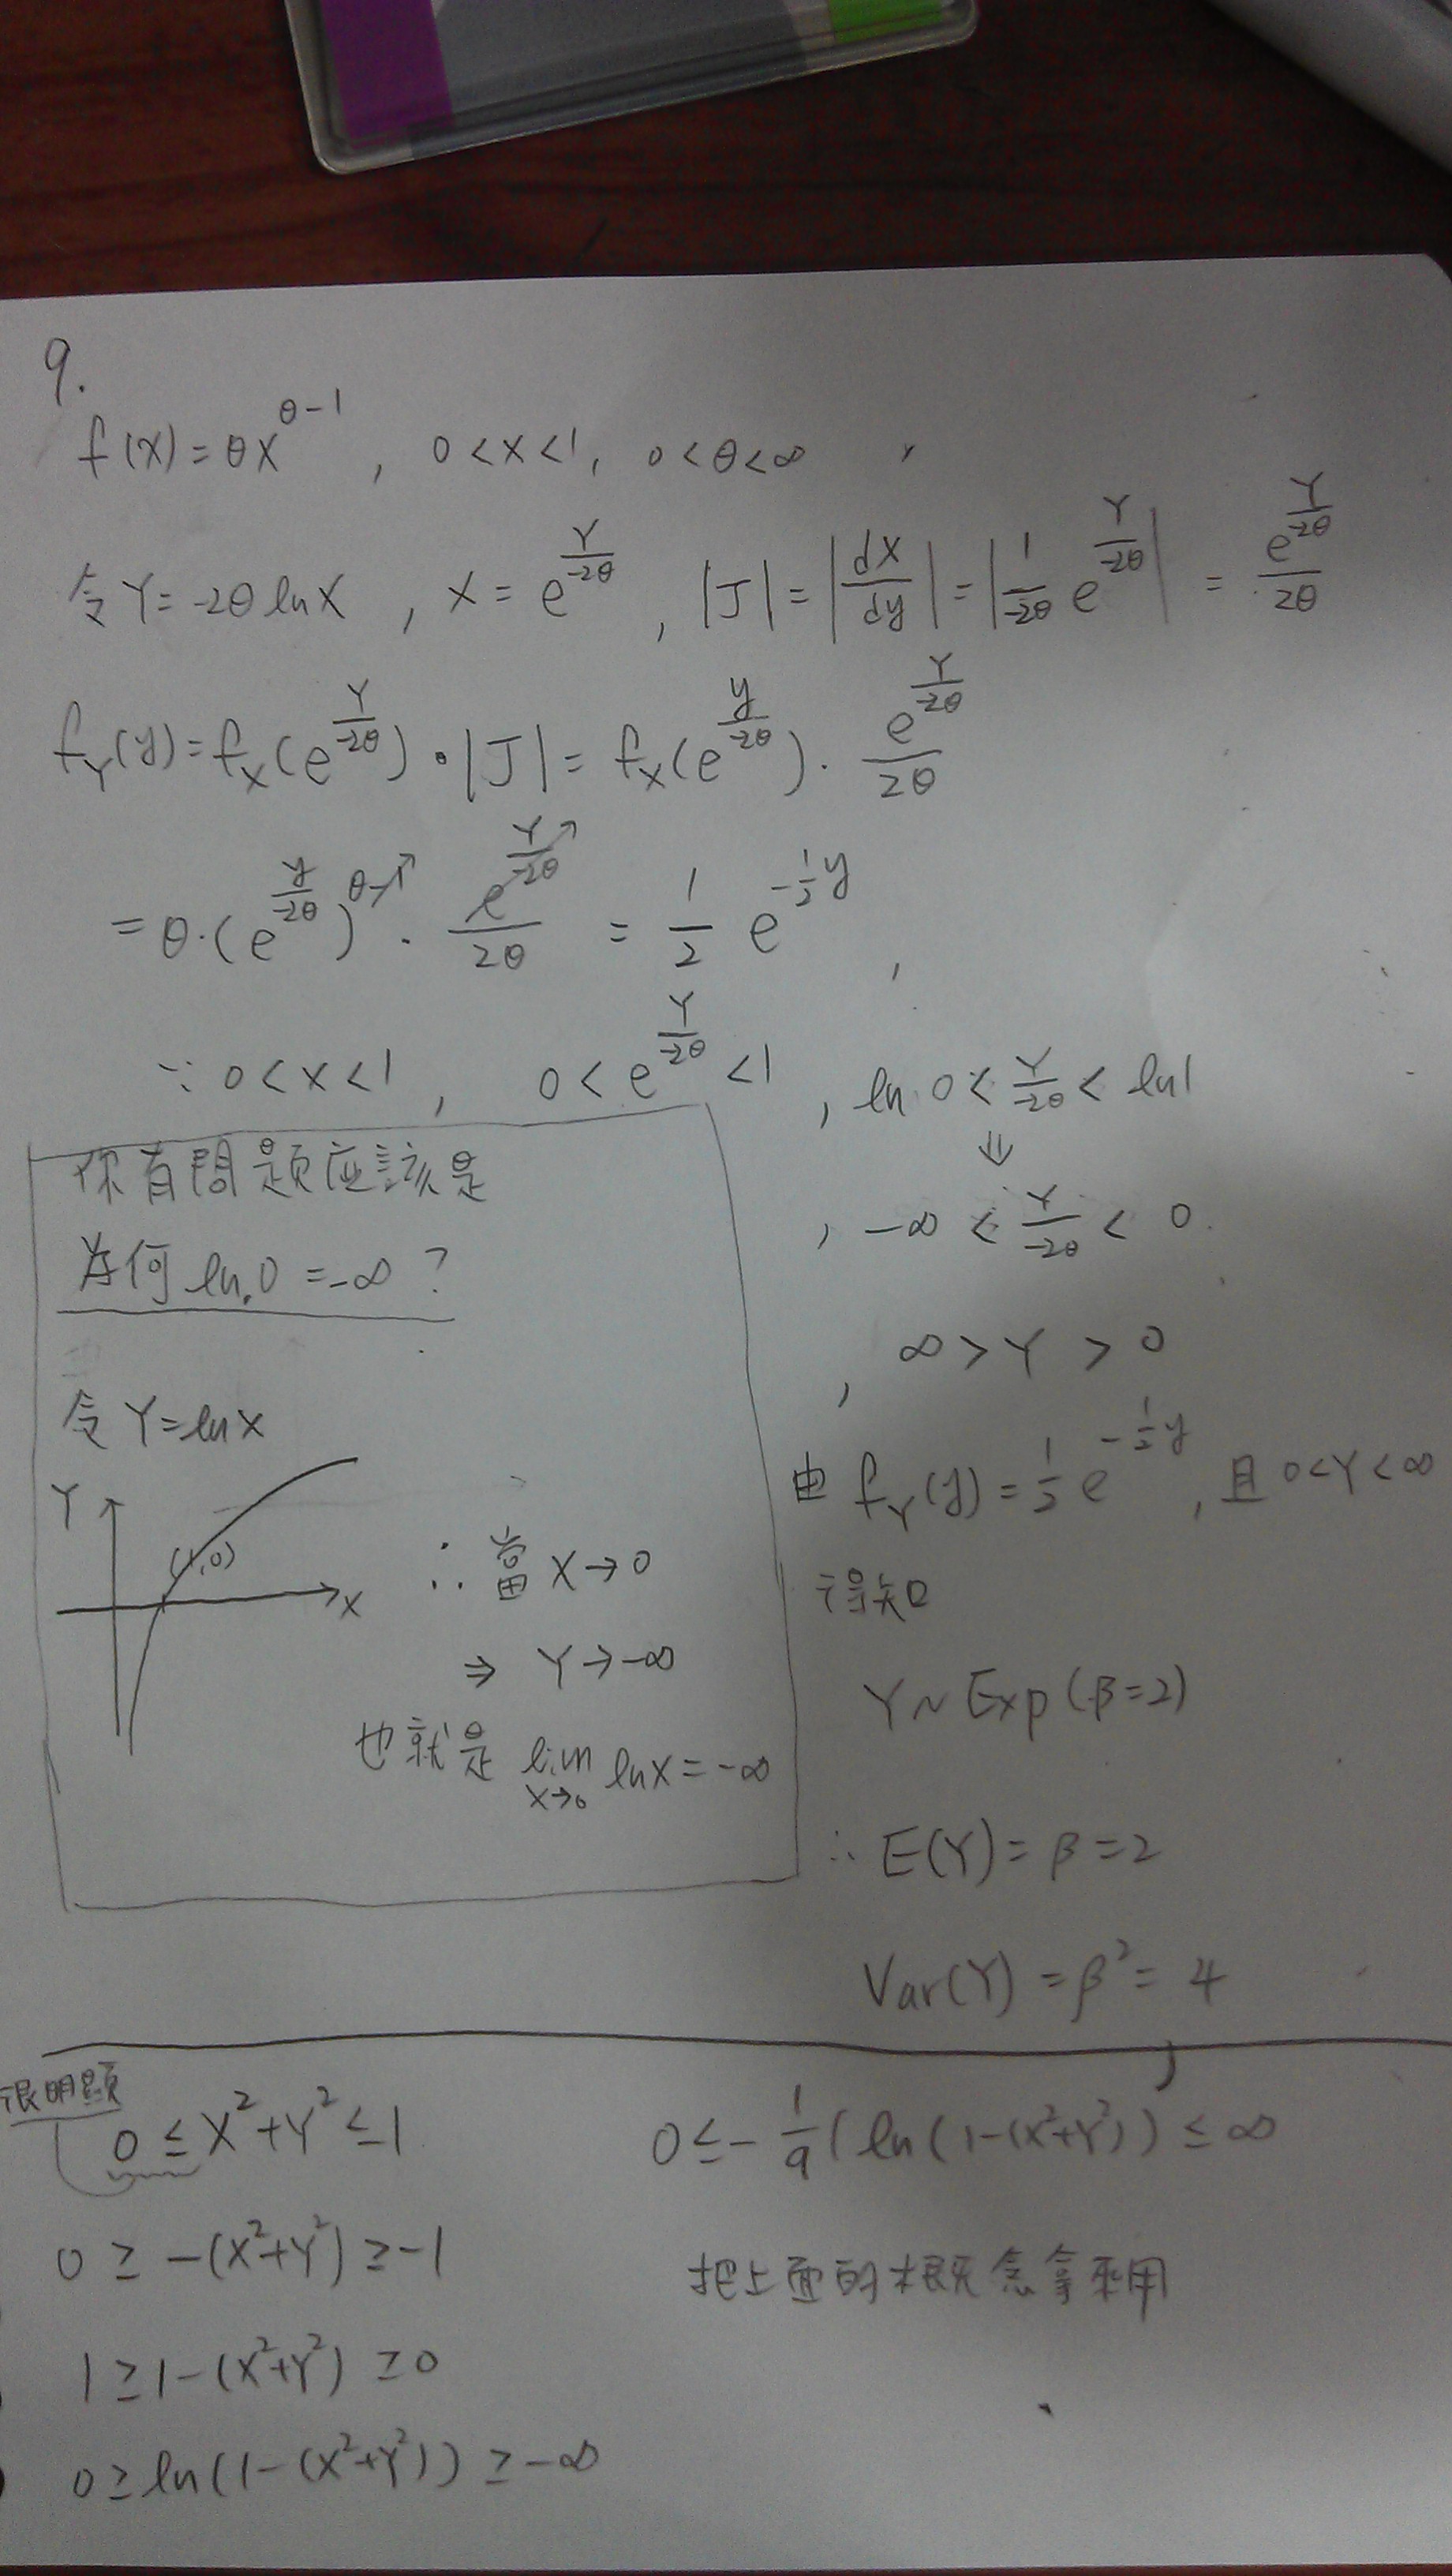 9.
f(x) = θx^(θ-1) , 0<x<1, 0<θ<∞ ,
令 Y = -2θ ln X , X = e^(Y/-2θ) , |J| = |dX/dy| = |1/-2θ e^(Y/-2θ)| = e^(Y/-2θ)/2θ
f_Y(y) = f_X(e^(Y/-2θ)) · |J| = f_X(e^(y/-2θ)) · e^(Y/-2θ)/2θ
= θ·(e^(y/-2θ))^(θ-1) · e^(Y/-2θ)/2θ = 1/2 e^(-1/2 y) ,
∵ 0<x<1 , 0 < e^(Y/-2θ) < 1 , ln 0 < Y/-2θ < ln 1
⇓
, -∞ < Y/-2θ < 0
, ∞ > Y > 0
由 f_Y(y) = 1/2 e^(-1/2 y) , 且 0<Y<∞
得知
Y ~ Exp(β=2)
∴ E(Y) = β = 2
Var(Y) = β² = 4
你有問題应該是
为何 ln 0 = -∞ ?
令 Y = ln X
Y
(1,0)
X
∴ 當 X→0
⇒ Y→-∞
也就是 lim_(X→0) ln X = -∞
很明顕
0 ≤ X²+Y² ≤ 1
0 ≥ -(X²+Y²) ≥ -1
1 ≥ 1-(X²+Y²) ≥ 0
0 ≥ ln(1-(X²+Y²)) ≥ -∞
0 ≤ - 1/9 (ln(1-(X²+Y²)) ≤ ∞
把上面的概念拿來用